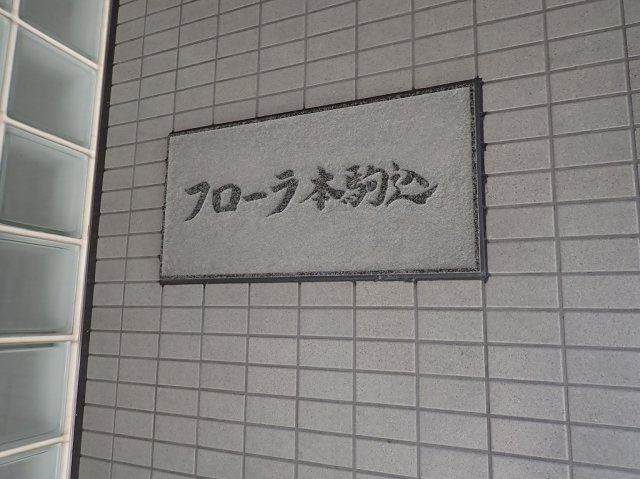 フローラ本駒込